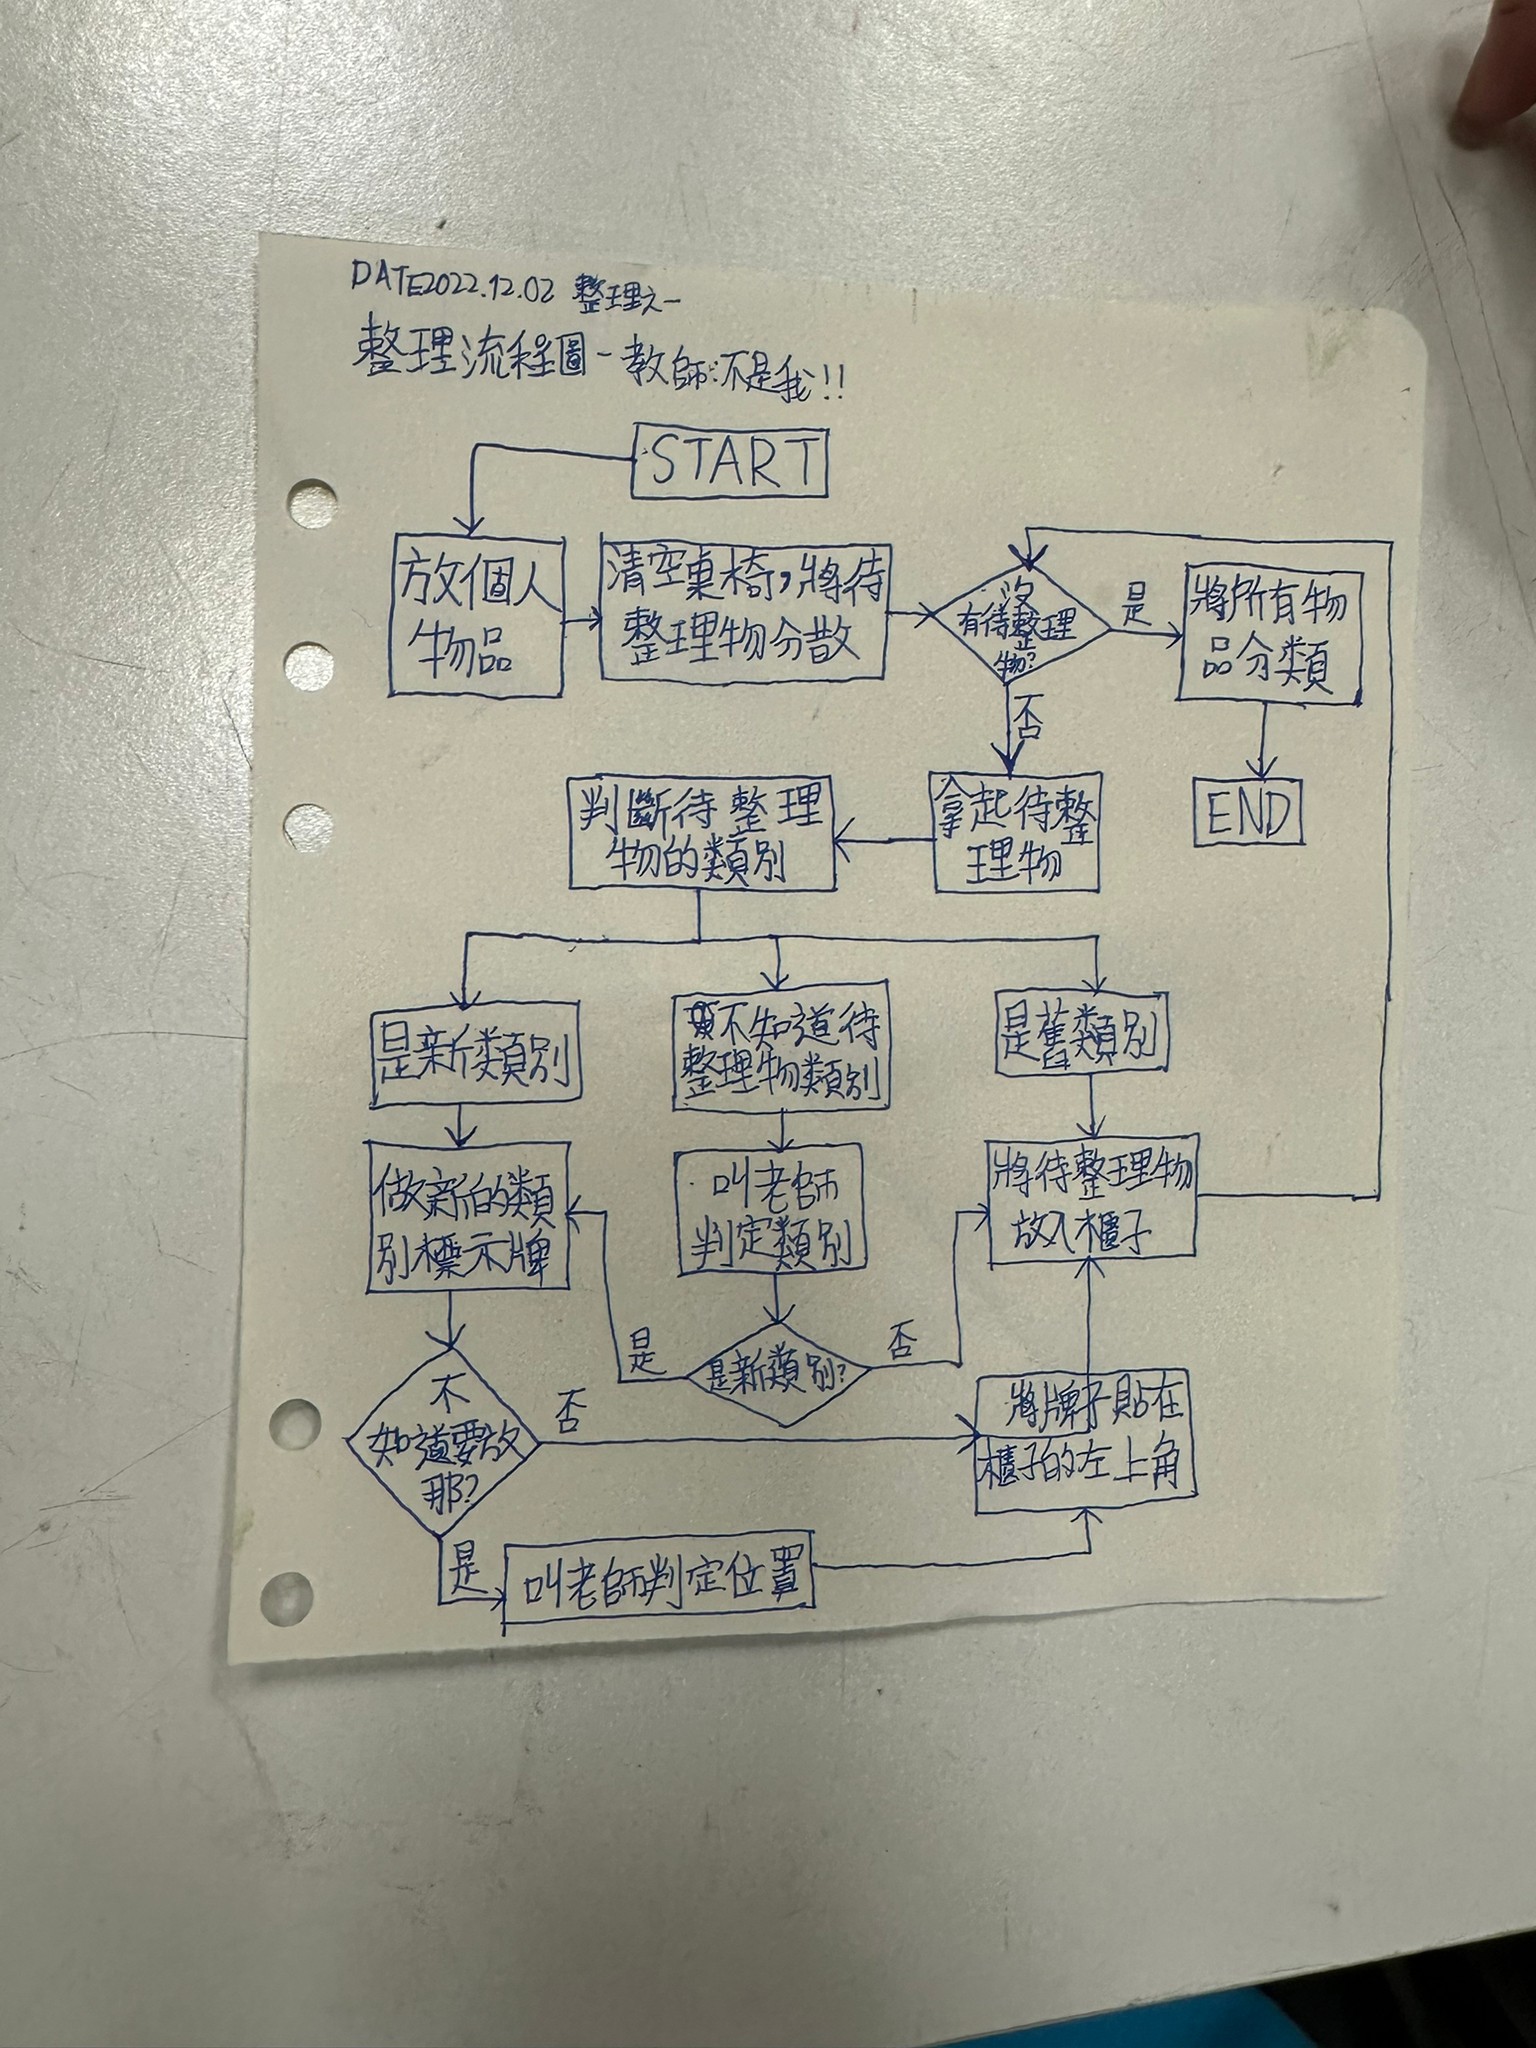 DATE2022.12.02 整理之一
整理流程圖-教師:不是我!!
START
放個人
物品
清空桌椅,將待
整理物分散
沒
有待整理
物?
是
將所有物
品分類
否
END
判斷待整理
物的類別
拿起待整
理物
是新類別
不知道待
整理物類別
是舊類別
做新的類
別標示牌
叫老師
判定類別
將待整理物
放入櫃子
是
是新類別?
否
不
知道要放
那?
否
將牌子貼在
櫃子的左上角
是
叫老師判定位置